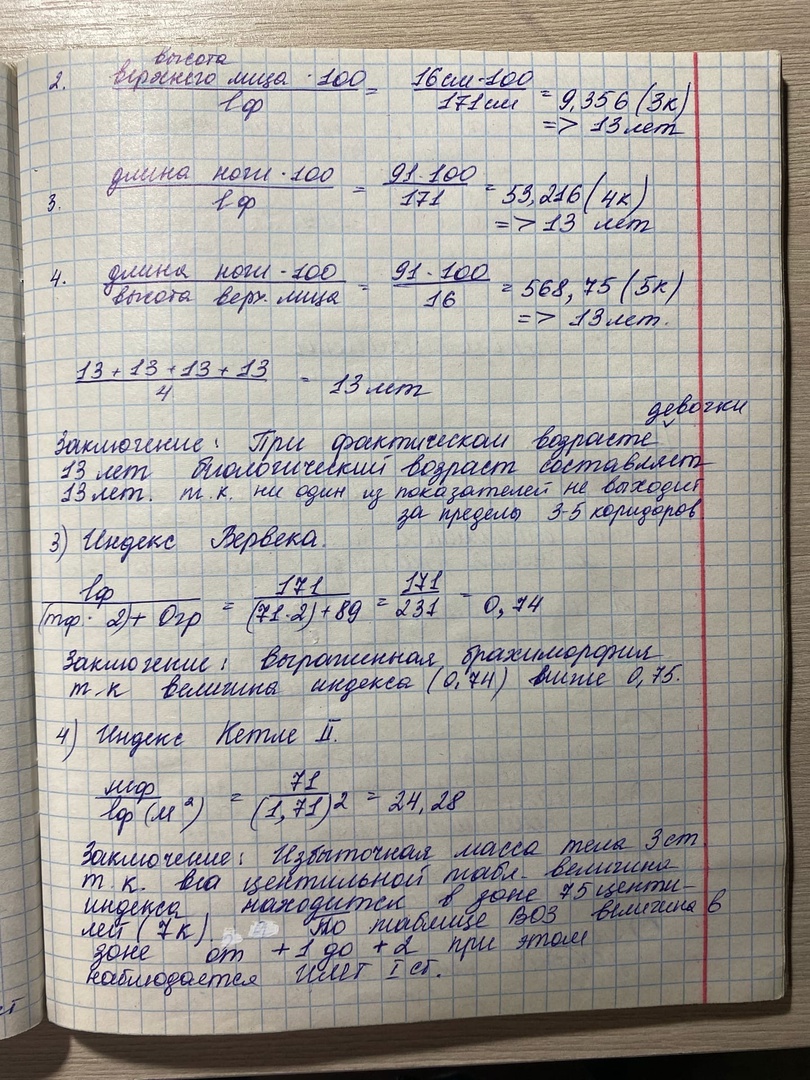 высота
2. верхнего лица · 100 / lф = 16см·100 / 171см = 9,356 (3к)
=> 13 лет
3. длина ноги · 100 / lф = 91·100 / 171 = 53,216 (4к)
=> 13 лет
4. длина ноги · 100 / высота верх. лица = 91·100 / 16 = 568,75 (5к)
=> 13 лет.
13 + 13 + 13 + 13 / 4 = 13 лет
девочки
Заключение: При фактическом возрасте
13 лет биологический возраст составляет
13 лет. т.к. ни один из показателей не выходит
за пределы 3-5 коридоров
3) Индекс Вервека.
lф / (mф · 2) + Огр = 171 / (71·2) + 89 = 171 / 231 = 0,74
Заключение: выраженная брахиморфия
т.к величина индекса (0,74) ниже 0,75.
4) Индекс Кетле II.
mф / lф (м²) = 71 / (1,71)2 = 24,28
Заключение: Избыточная масса тела 3 ст.
т.к. на центильной табл. величина
индекса находится в зоне 75 центи-
лей (7к) По таблице ВОЗ величина в
зоне от +1 до +2 при этом
наблюдается ИМТ I ст.